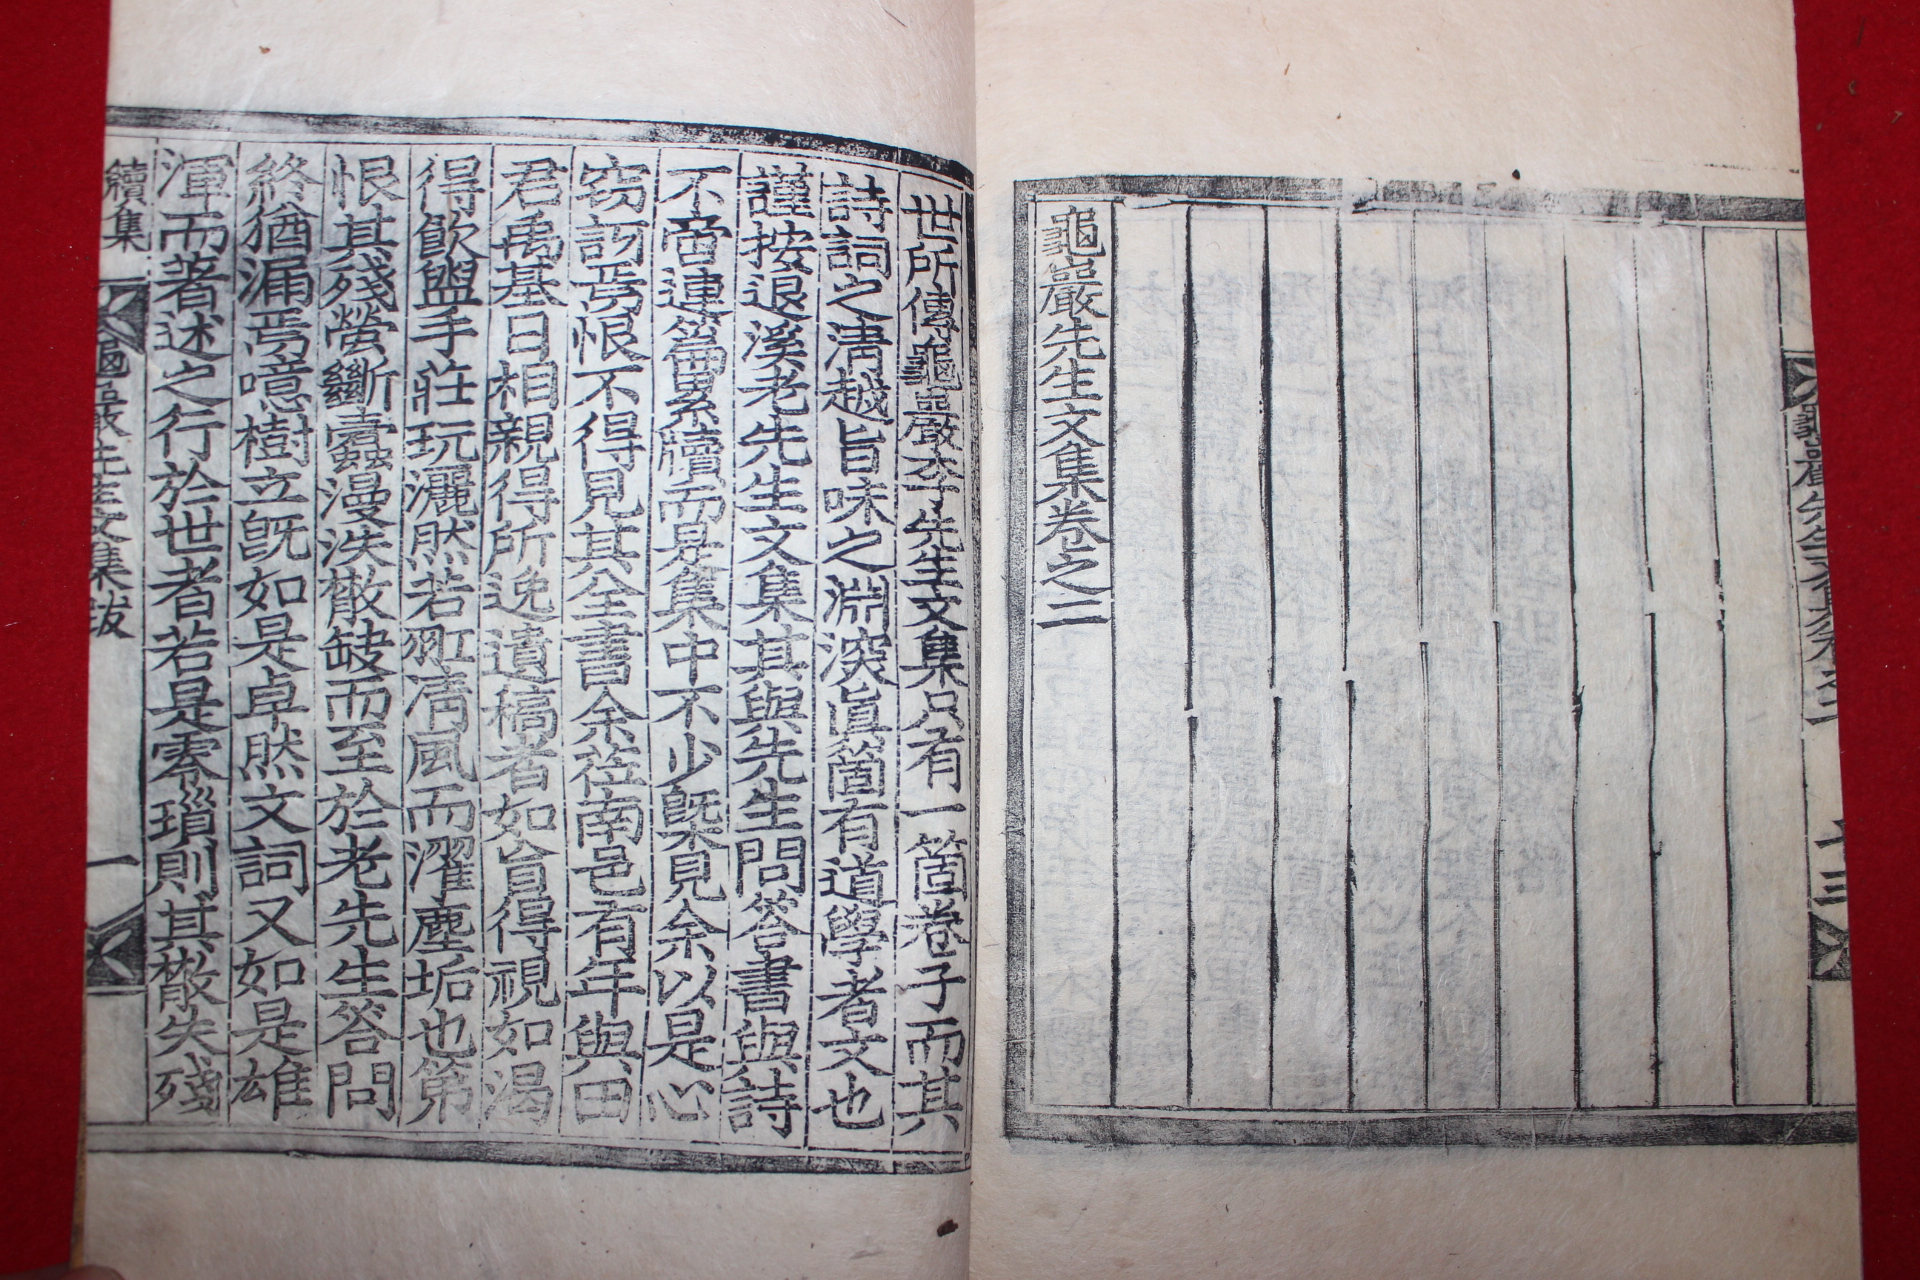 龜巖先生文集卷之二
世所傳龜巖李先生文集只有一箇卷子而其
詩詞之淸越旨味之淵深眞箇有道學者文也
謹按退溪老先生文集其與先生問答書與詩
不啻連篇累牘而是集中不少槩見余以是心
窃訝焉恨不得見其全書余莅南邑有年與田
君禹基日相親得所逸遺稿者如旨得視如渴
得飮盥手莊玩灑然若 淸風而濯塵垢也第
恨其殘螢斷蠹漫泆散缺而至於老先生答問
終猶漏焉噫樹立旣如是卓然文詞又如是雄
渾而著述之行於世者若是零瑣則其散失殘
續集 龜巖先生文集跋 一